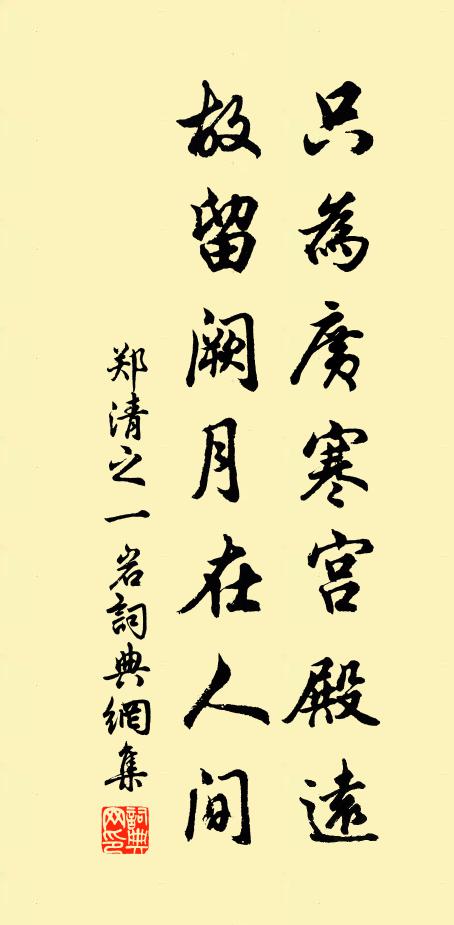 只為廣寒宮殿遠
故留阙月在人间
郑清之一岩詞典網集
詞典網印